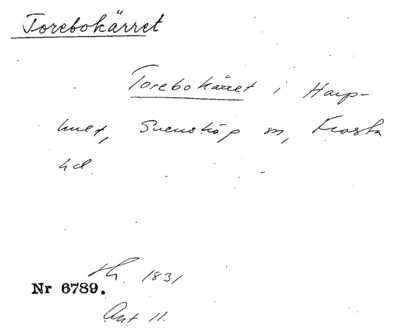 Torebokärret
Torebokärret i Harp-
hult, Svensköp sn, Frosta
hd.
1831
Nr 6789.
Akt 11.